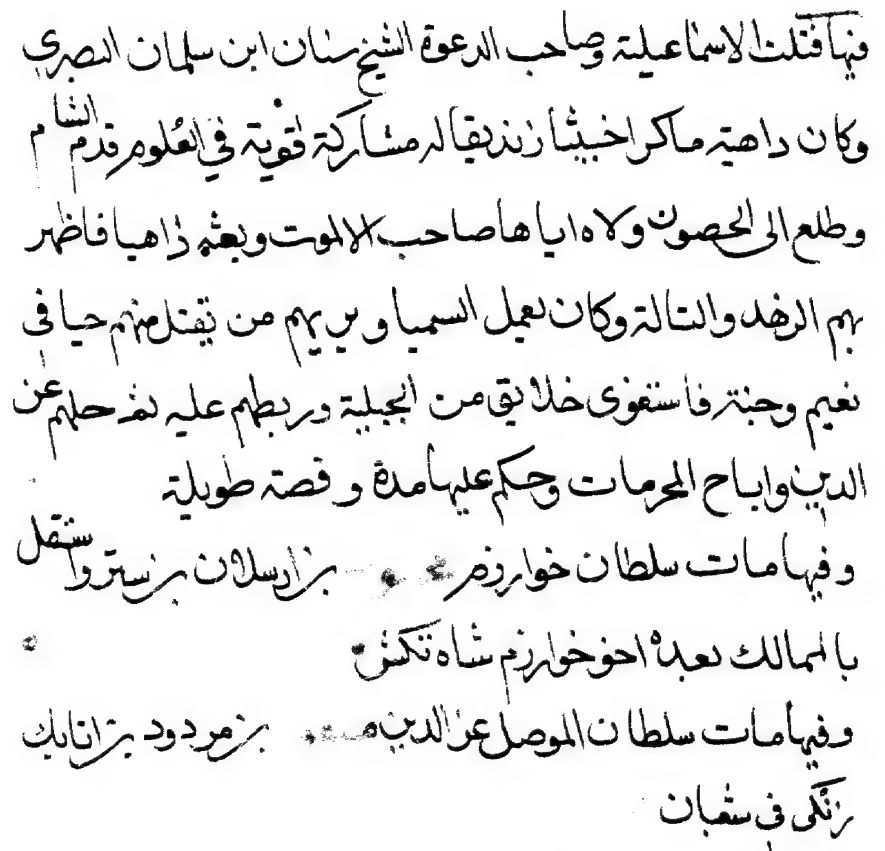 فيها قتلت الاسماعيلية وصاحب الدعوة الشيخ سنان ابن سلمان البصري
وكان داهية ماكرا خبيثا زنديقا له مشاركة قوية في العلوم قدم الشام
وطلع الى الحصون ولاه اياها صاحب الالموت وبعثه داهيا فاظهر
بهم الزهد والتالة وكان يعمل السميا ويريهم من يقتل منهم حيا في
نعيم وجنة فاستغوى خلايق من الجبلية وربطهم عليه ثم حلهم عن
الدين واباح المحرمات وحكم عليها مدة وقصة طويلة
وفيها مات سلطان خوارزم بن ارسلان بن واستقل
بالممالك بعده اخو خوارزم شاه تكش
وفيها مات سلطان الموصل عز الدين بن مودود بن اتابك
زنكى فى شعبان